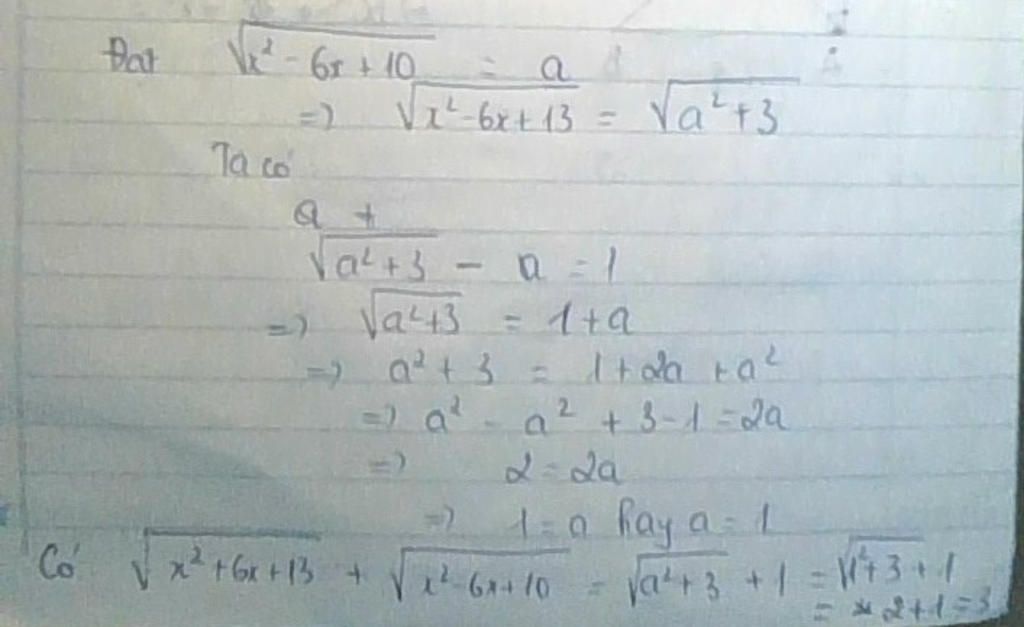 Đat √(x² - 6x + 10) = a
=) √(x² - 6x + 13) = √(a² + 3)
Ta có
a +
√(a² + 3) - a = 1
=) √(a² + 3) = 1 + a
=) a² + 3 = 1 + 2a + a²
=) a² - a² + 3 - 1 = 2a
=) 2 = 2a
=) 1 = a hay a = 1
Có √(x² + 6x + 13) + √(x² - 6x + 10) = √(a² + 3) + 1 = √(1² + 3) + 1
= 2 + 1 = 3